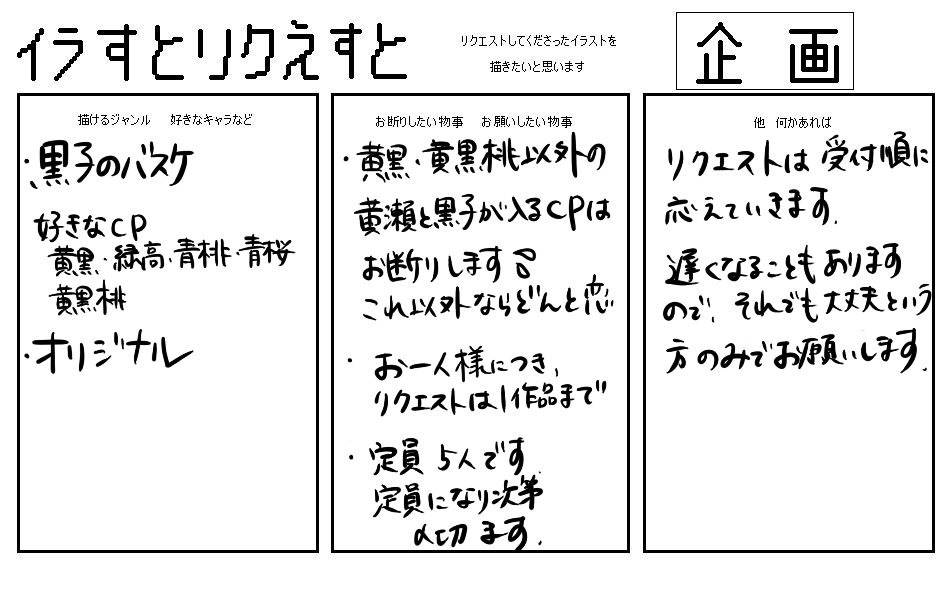 イラすとリクえすと
リクエストしてくださったイラストを
描きたいと思います
企画
描けるジャンル 好きなキャラなど
・黒子のバスケ
好きなCP
黄黒・緑高・青桃・青桜
黄黒桃
・オリジナル
お断りしたい物事 お願いしたい物事
・黄黒・黄黒桃以外の
黄瀬と黒子が入るCPは
お断りします
これ以外ならどんと恋
・お一人様につき、
リクエストは1作品まで
・定員 5人です
定員になり次第
〆切ます.
他 何かあれば
リクエストは受付順に
応えていきます.
遅くなることもあります
ので、それでも大丈夫という
方のみでお願いします.